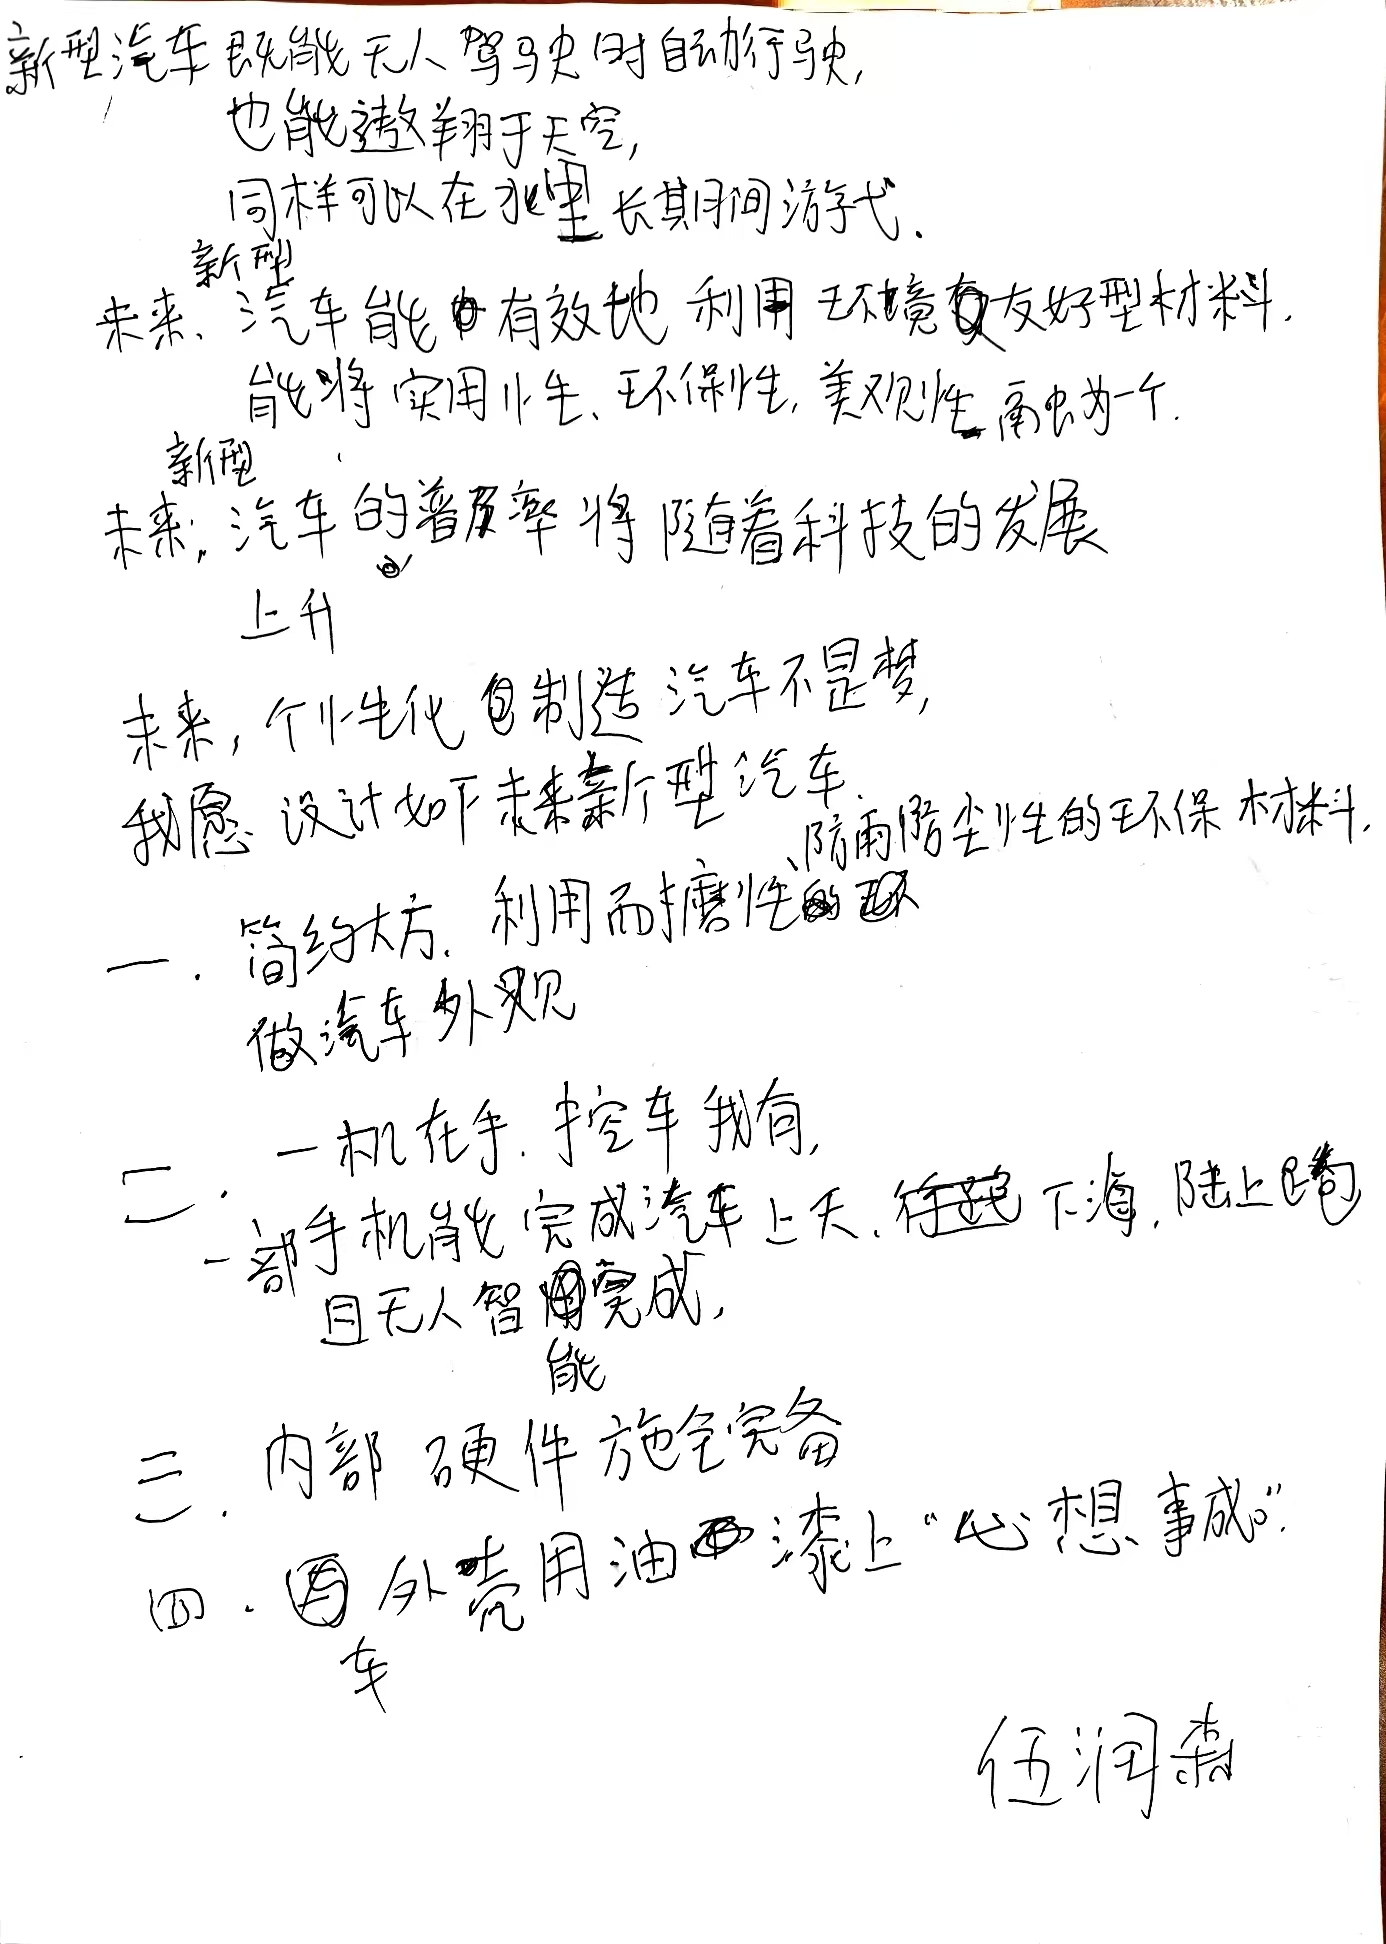 新型汽车既能无人驾驶时自动行驶,
也能遨翔于天空,
同样可以在水里长期间游弋.
新型
未来、汽车能有效地利用环境友好型材料.
能将实用性、环保性,美观性融为一个.
新型
未来,汽车的普及率将随着科技的发展
上升
未来,个性化制造汽车不是梦,
我愿设计如下未来新型汽车.
、防雨防尘性的环保材料.
一.简约大方.利用耐磨性
做汽车外观
二.一机在手.控车我有,
一部手机能完成汽车上天、下海,陆上跑
且无人智完成,
能
三.内部硬件施全完备
四.外壳用油漆上“心想事成”.
车
伍润森